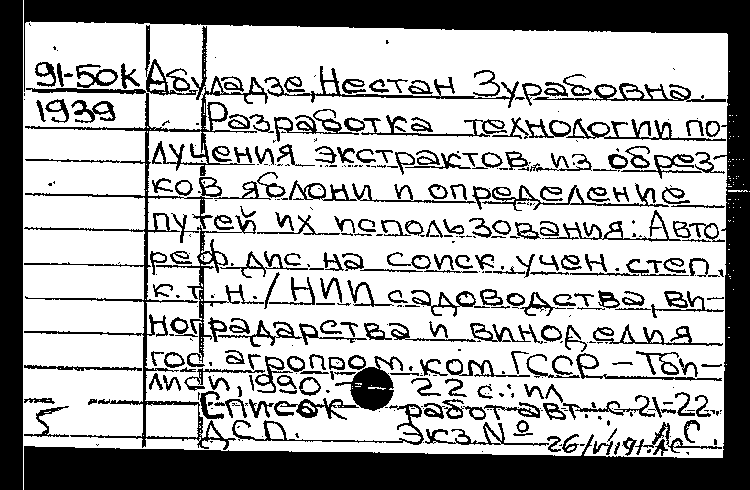 91-50К Абуладзе, Нестан Зурабовна.
1939 Разработка технологии по-
лучения экстрактов из обрез-
ков яблони и определение
путей их использования: Авто-
реф. дис. на соиск. учен. степ.
к.т.н. / НИИ садоводства, ви-
ноградарства и виноделия
гос. агропром. ком. ГССР. – Тби-
лиси, 1990. – 22 с.: ил
Список работ авт.: с. 21-22.
5 ДСП. Экз. №
26/VI 91.